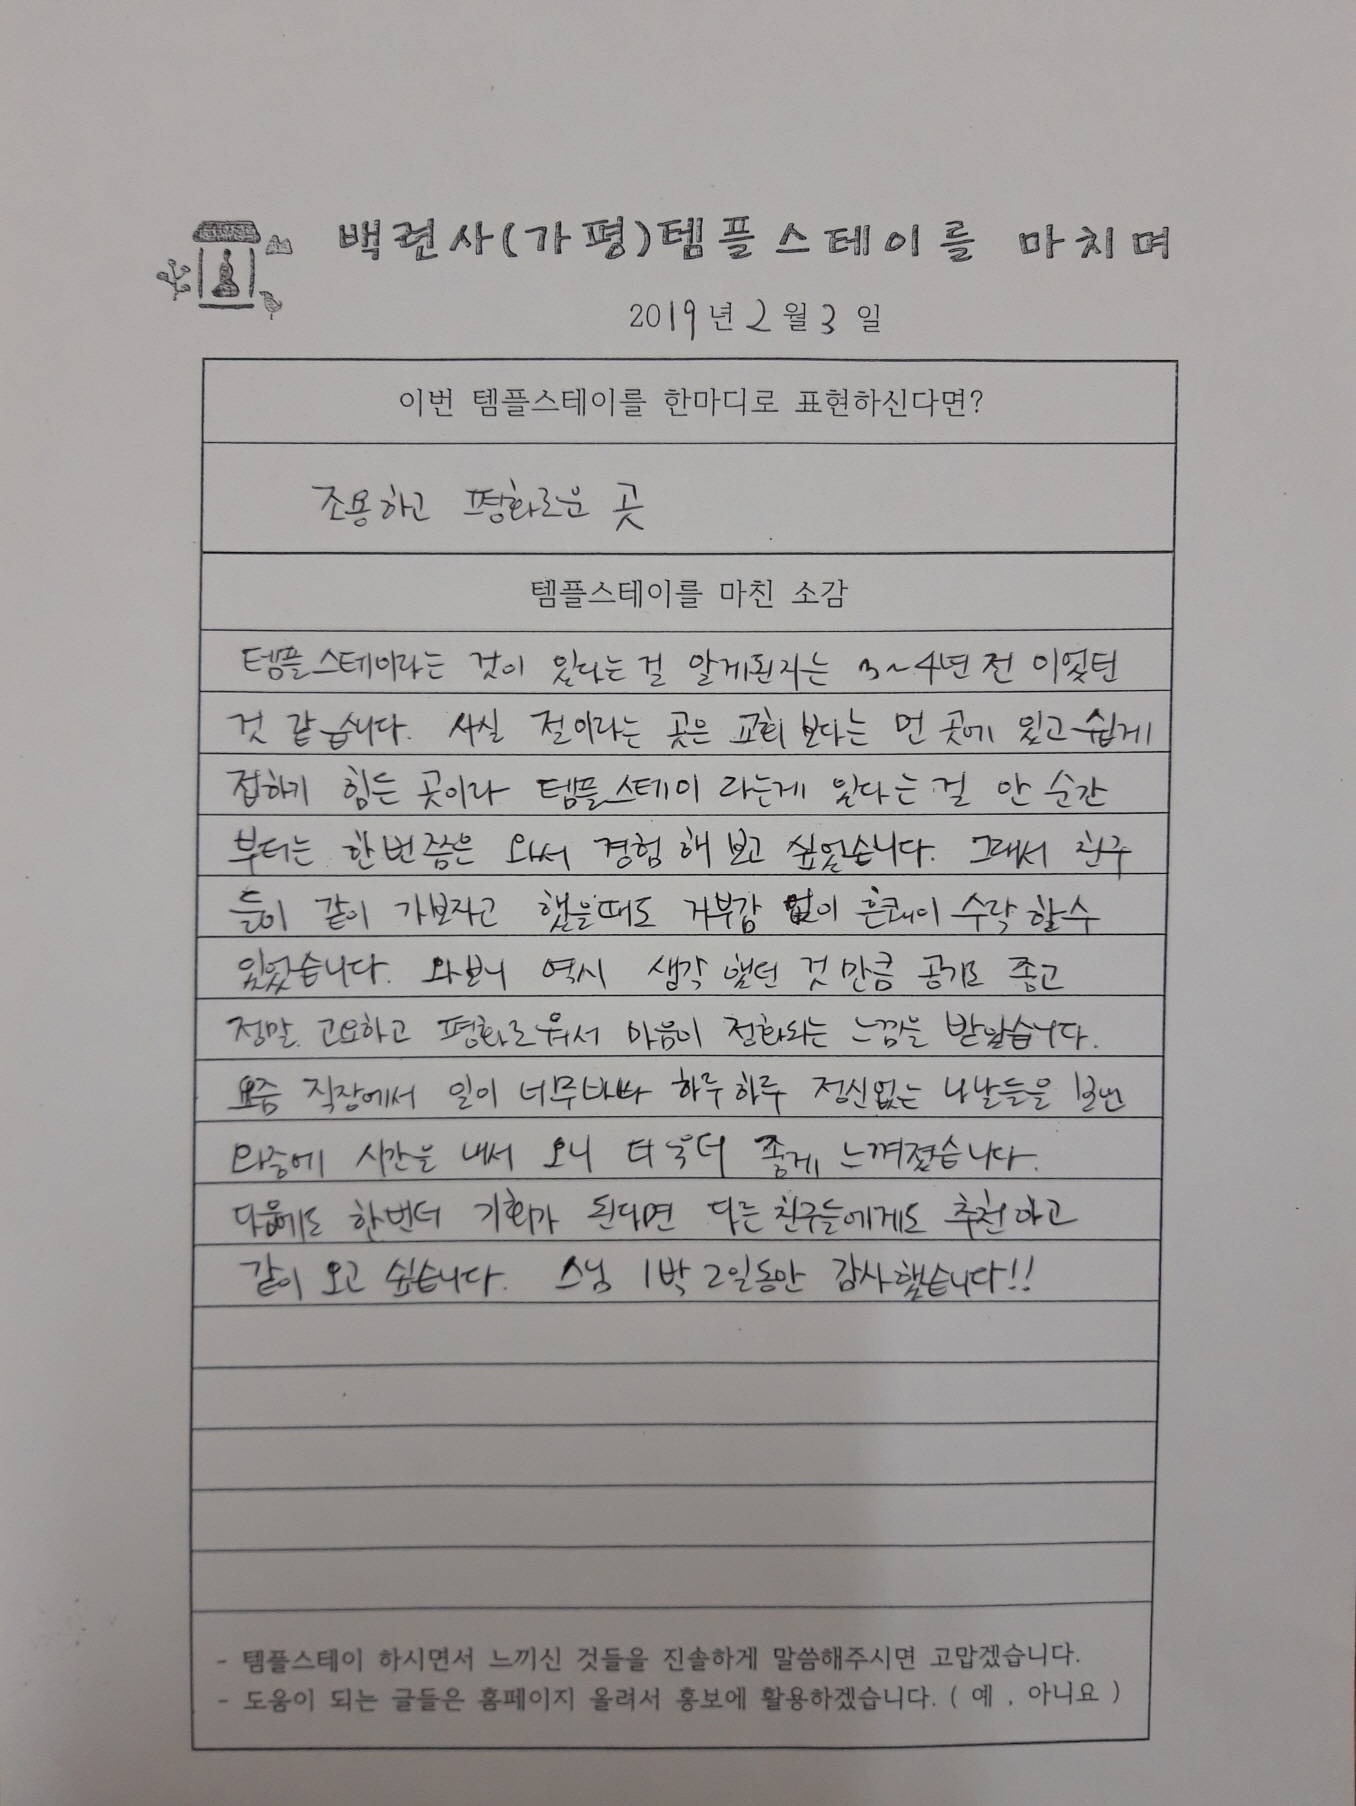 백련사(가평)템플스테이를 마치며
2019년 2월 3일
이번 템플스테이를 한마디로 표현하신다면?
조용하고 평화로운 곳
템플스테이를 마친 소감
템플스테이라는 것이 있다는 걸 알게된지는 3~4년 전 이었던
것 같습니다. 사실 절이라는 곳은 교회 보다는 먼 곳에 있고 쉽게
접하기 힘든 곳이라 템플스테이 라는게 있다는 걸 안 순간
부터는 한번쯤은 와서 경험 해 보고 싶었습니다. 그래서 친구
들이 같이 가보자고 했을때도 거부감 없이 흔쾌이 수락 할수
있었습니다. 와보니 역시 생각 했던 것 만큼 공기도 좋고
정말 고요하고 평화로워서 마음이 정화되는 느낌을 받았습니다.
요즘 직장에서 일이 너무바빠 하루하루 정신없는 나날들을 보낸
와중에 시간을 내서 오니 더욱더 좋게 느껴졌습니다.
다음에도 한번더 기회가 된다면 다른 친구들에게도 추천하고
같이 오고 싶습니다. 스님 1박 2일동안 감사했습니다!!
- 템플스테이 하시면서 느끼신 것들을 진솔하게 말씀해주시면 고맙겠습니다.
- 도움이 되는 글들은 홈페이지 올려서 홍보에 활용하겠습니다. ( 예 , 아니요 )